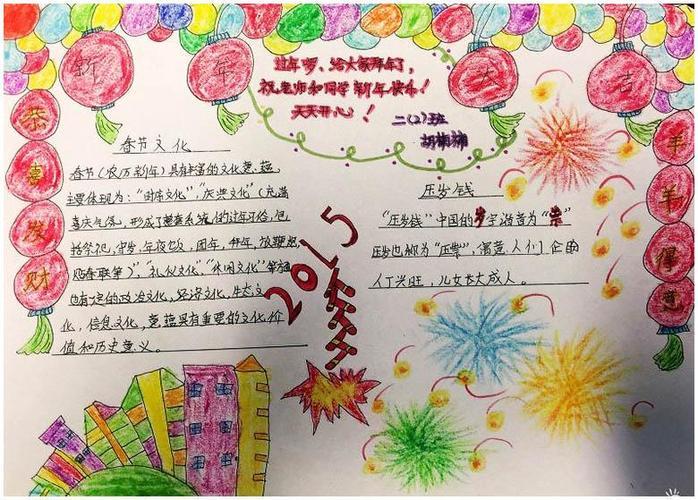 新年大吉
恭喜发财
羊羊得意
过年啰,给大家拜年了,
祝老师和同学新年快乐!
天天开心!
二(2)班
春节文化
春节(农历新年)具有丰富的文化意蕴,
主要体现为:"团席文化","庆典文化"(充满
喜庆气氛,形成了整套系统的过年习俗,包
括祭祀,守岁,年夜饭,团年,拜年,放鞭炮
贴春联等)","礼仪文化","休闲文化"等
也有一定的政治文化,经济文化,生态文
化,信息文化,意蕴具有重要的文化价
值和历史意义。
2015
压岁钱
"压岁钱"中国的岁字谐音为"祟"
压岁也称为"压祟",寓意人们企盼
人丁兴旺,儿女长大成人。